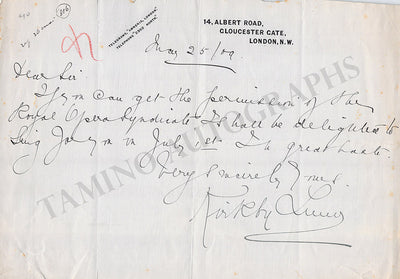 206
14, ALBERT ROAD,
GLOUCESTER GATE,
LONDON, N.W.
May 25/09
Dear Sir
If you can get the permission of the
Royal Opera Syndicate I shall be delighted to
sing for you on July 1st. In great haste
Very sincerely yours
Kirkby Lunn
TAMINO AUTOGRAPHS